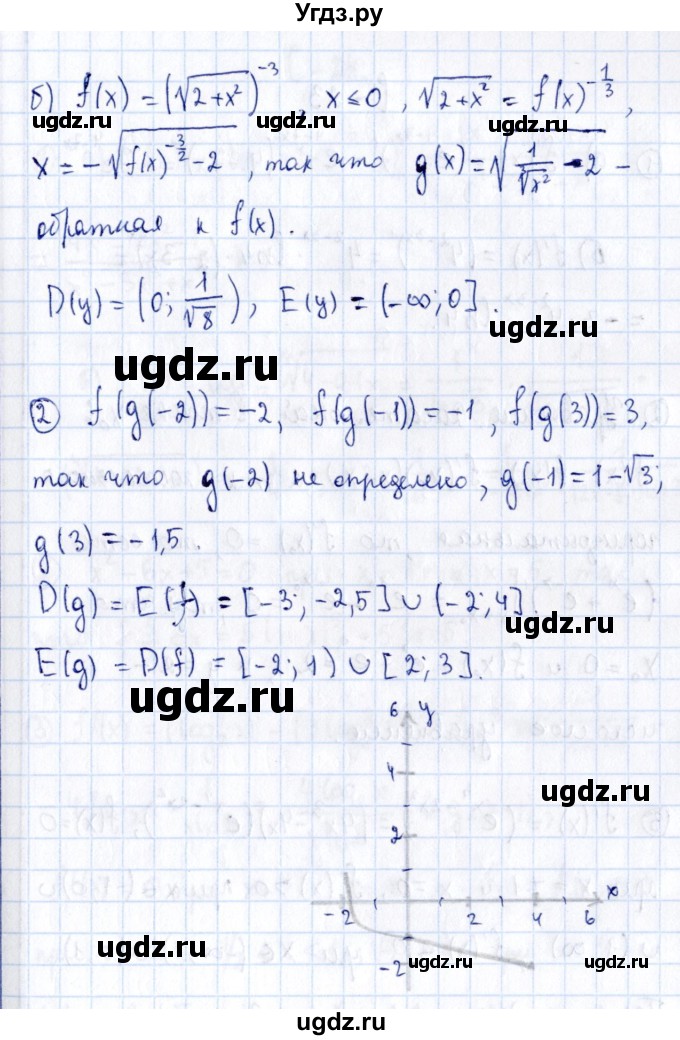 Угдз.ру
б) f(x) = (√(2+x²))⁻³, x ≤ 0, √(2+x²) = f(x)^(-1/3),
x = -√(f(x)^(-3/2) - 2), так что g(x) = √(1/∛(x²) - 2) -
обратная к f(x).
D(y) = (0; 1/√8), E(y) = (-∞; 0].
ugdz.ru
ugdz.ru
② f(g(-2)) = -2, f(g(-1)) = -1, f(g(3)) = 3,
так что g(-2) не определено, g(-1) = 1-√3;
g(3) = -1,5.
D(g) = E(f) = [-3; -2,5] ∪ (-2; 4].
ugdz.ru
E(g) = D(f) = [-2; 1) ∪ [2; 3].
ugdz.ru
6 y
4
ugdz.ru
2
x
-2 2 4 6
ugdz.ru
-2 ugdz.ru ugdz.ru
ugdz.ru